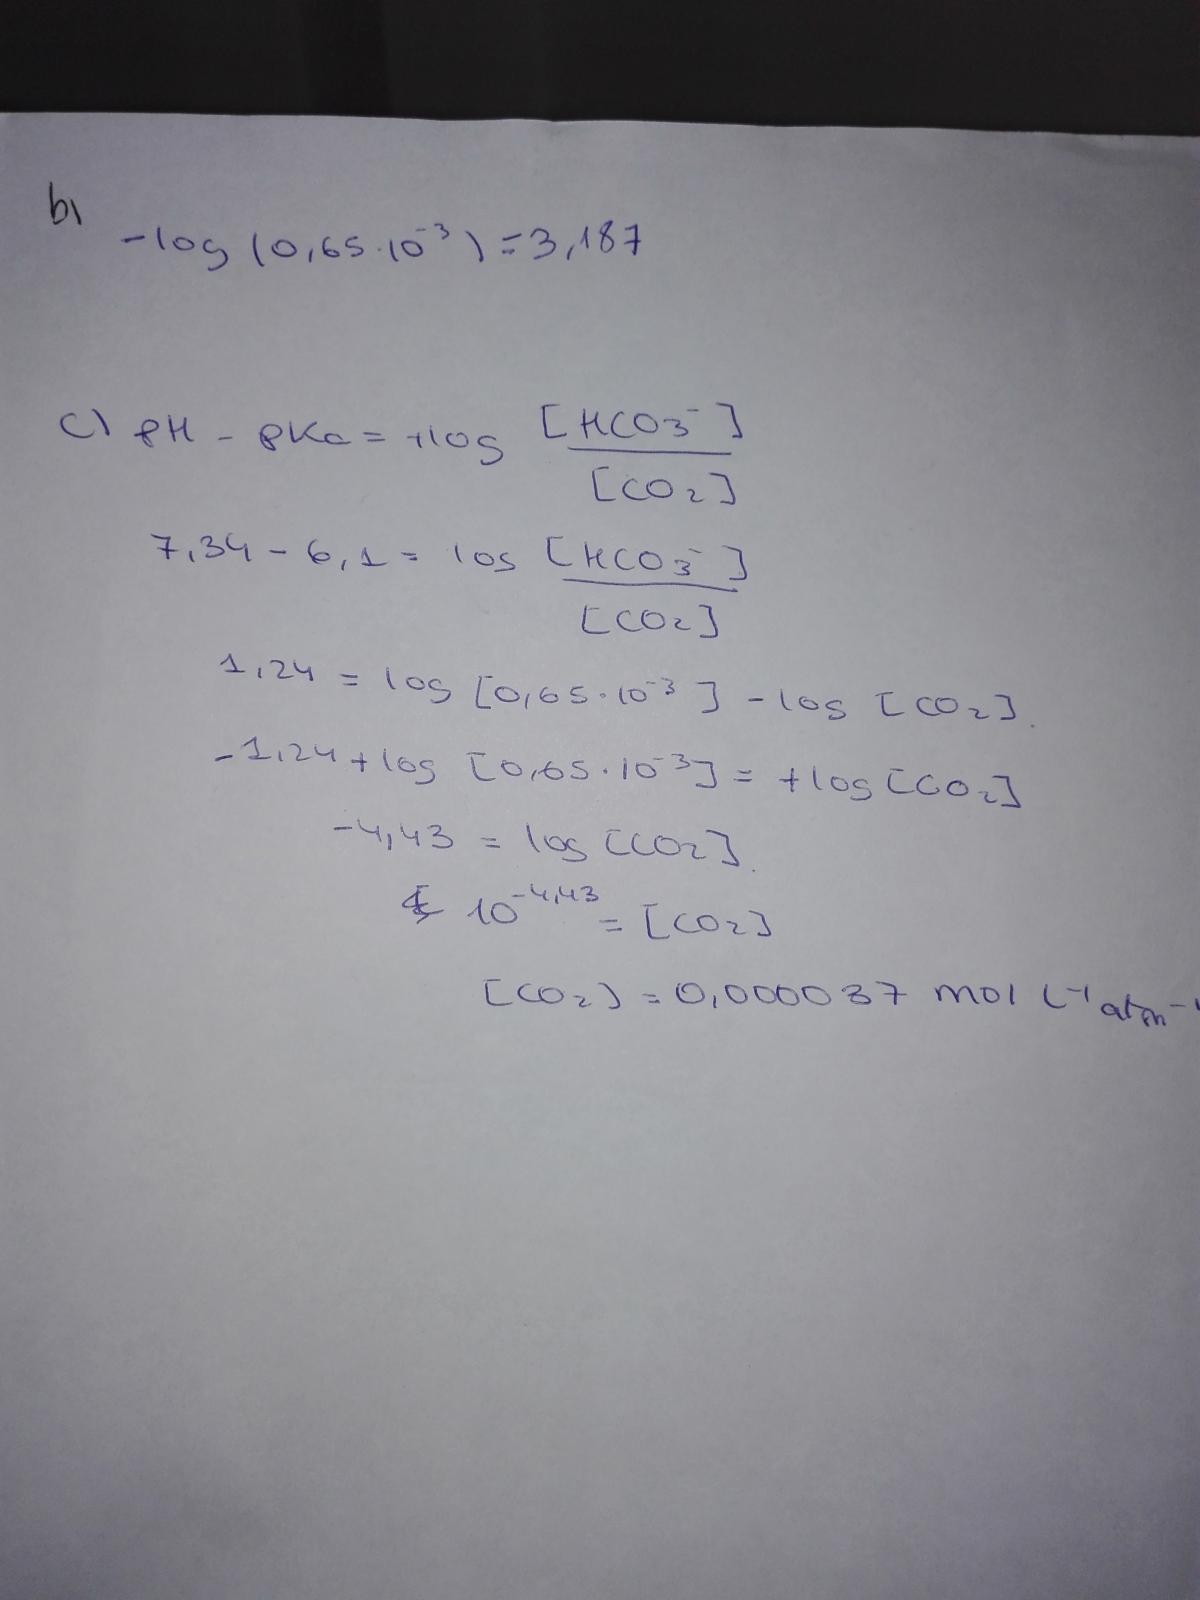 b)
-log (0,65·10⁻³) = 3,187
c) pH - pKa = +log [HCO3⁻]
[CO2]
7,34 - 6,1 = log [HCO3⁻]
[CO2]
1,24 = log [0,65·10⁻³] - log [CO2].
-1,24 + log [0,65·10⁻³] = +log [CO2]
-4,43 = log [CO2].
10⁻⁴,⁴³ = [CO2]
[CO2] = 0,000037 mol L⁻¹ atm⁻¹